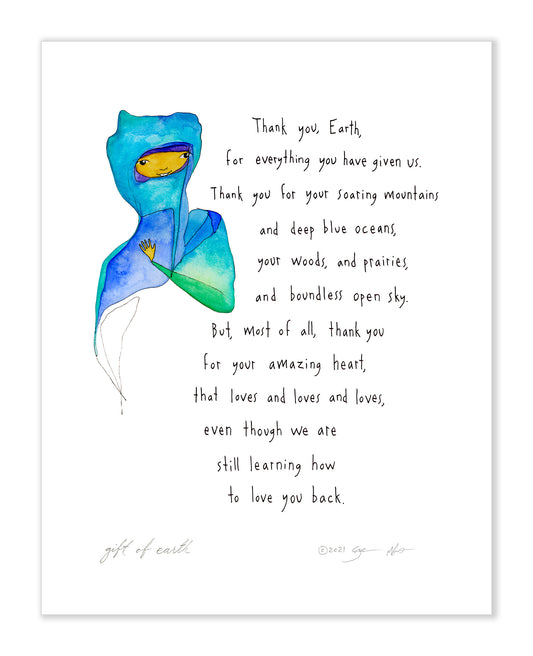 Thank you, Earth,
for everything you have given us.
Thank you for your soaring mountains
and deep blue oceans,
your woods, and prairies,
and boundless open sky.
But, most of all, thank you
for your amazing heart,
that loves and loves and loves,
even though we are
still learning how
to love you back.
gift of earth
©2021